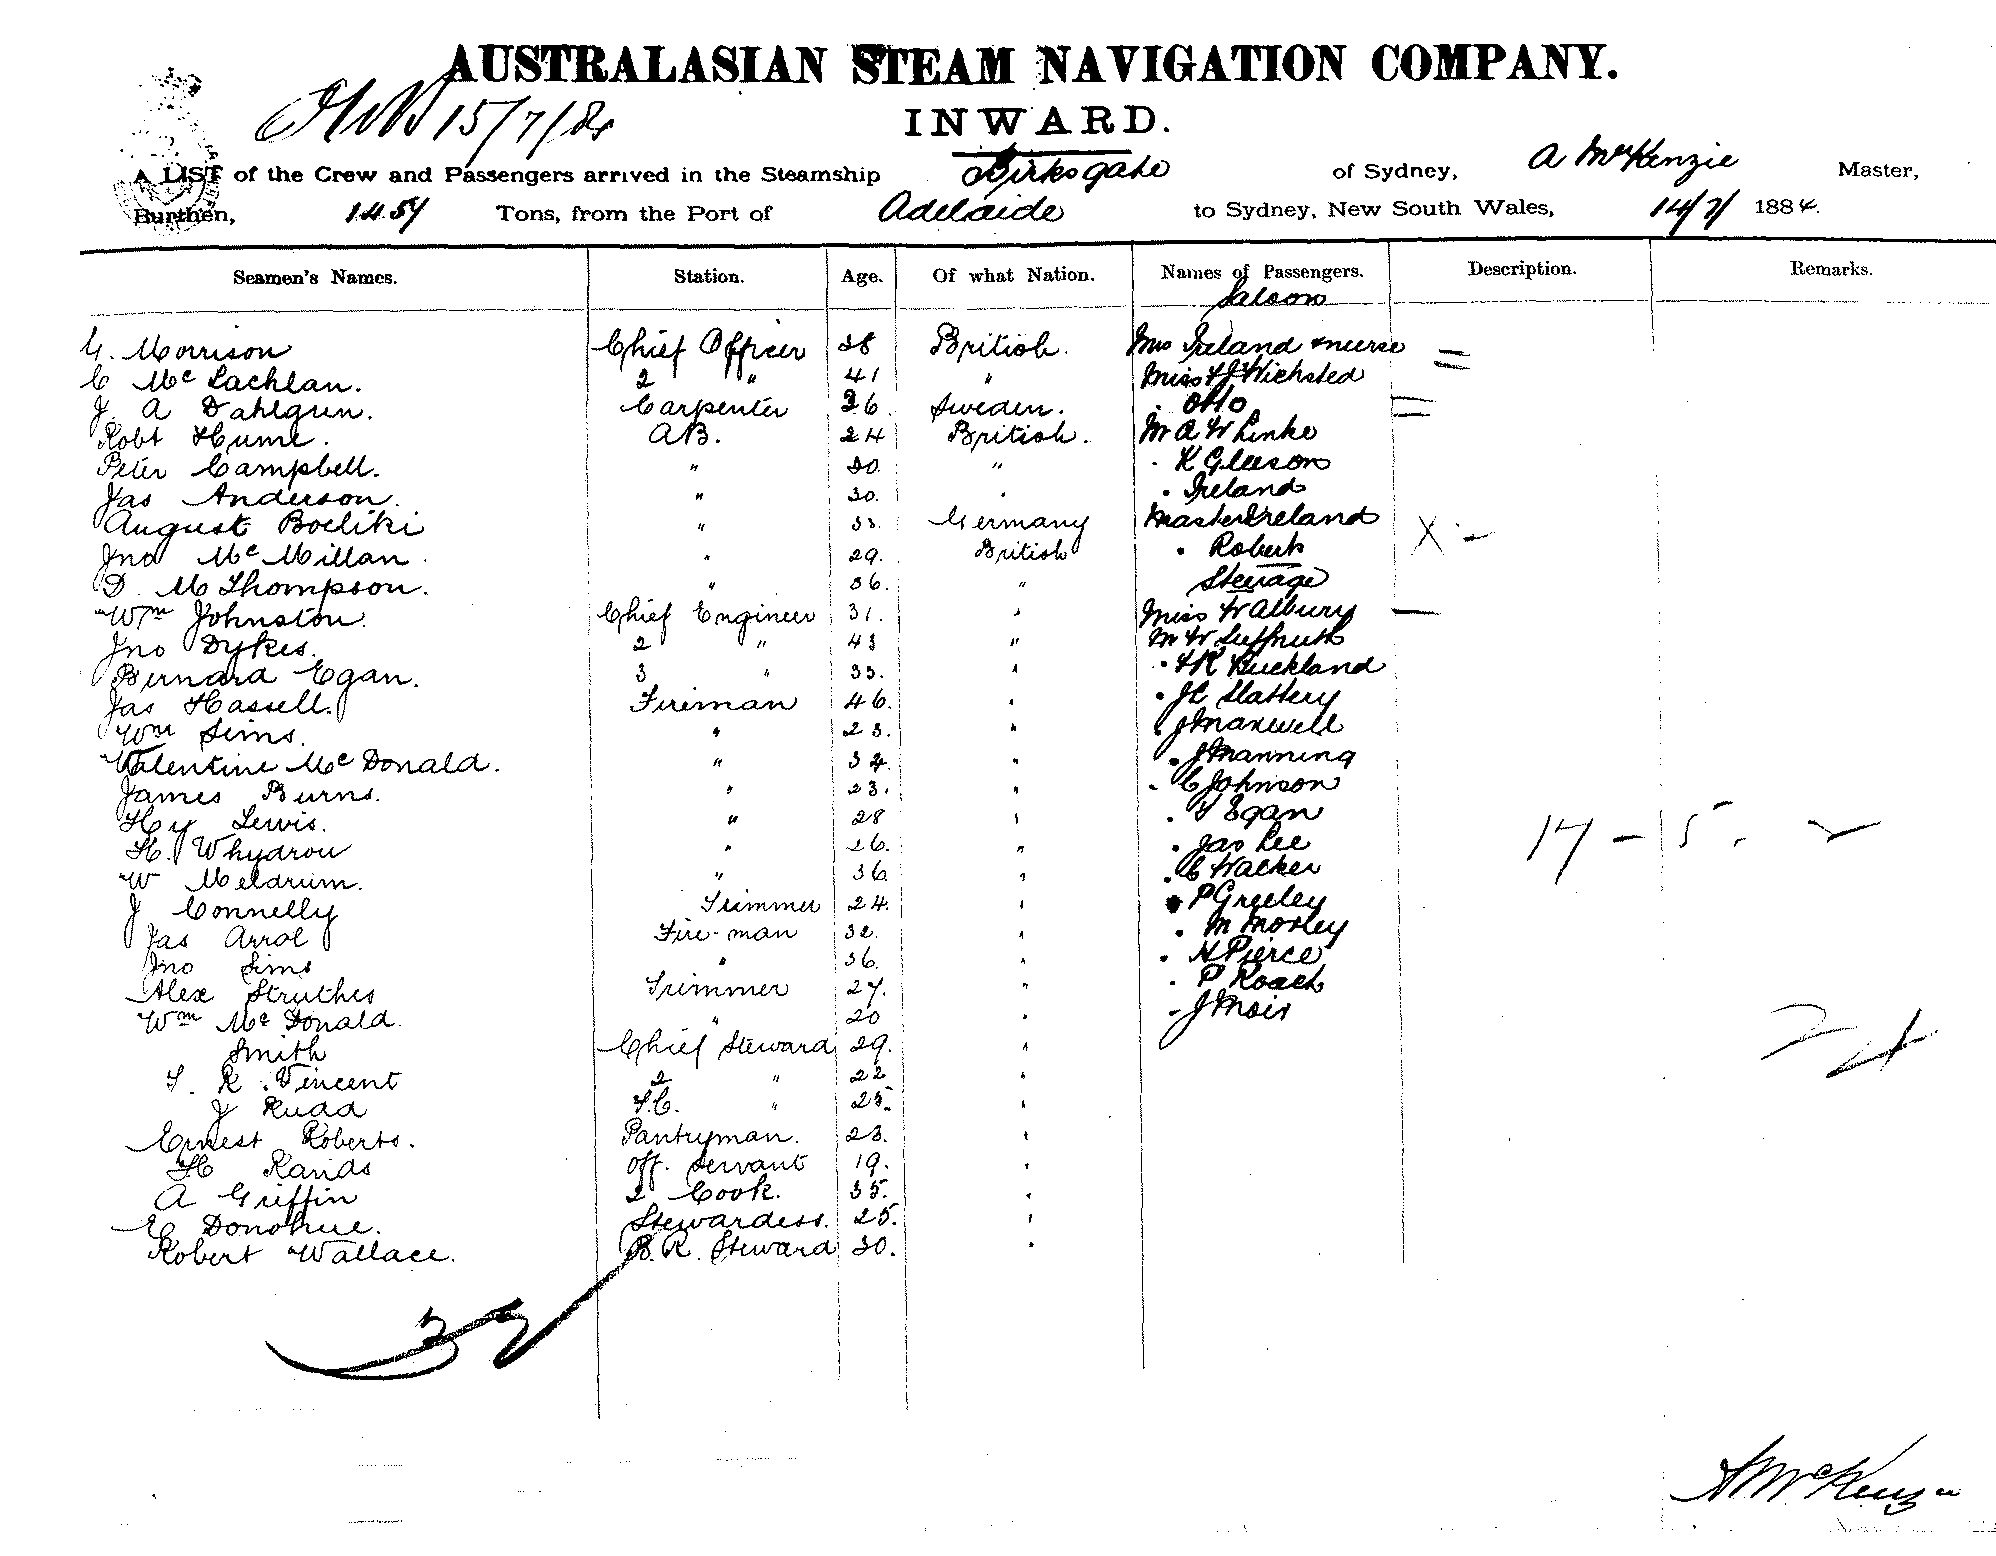 AUSTRALASIAN STEAM NAVIGATION COMPANY.
15/7/84
INWARD.
A LIST of the Crew and Passengers arrived in the Steamship Birksgate of Sydney, A McKenzie Master,
Burthen, 1457 Tons, from the Port of Adelaide to Sydney, New South Wales, 14/7/ 1884.
Seamen's Names. Station. Age. Of what Nation. Names of Passengers. Description. Remarks.
Saloon
G. Morrison Chief Officer 38 British. Mrs Ireland & nurse =
C McLachlan. 2 " 41 " Miss Wicksted
J. A Dahlgren. Carpenter 36 Sweden. . Otto =
Robt Hume. AB. 24 British. Mr A W Linke
Peter Campbell. " 30. " . K Gleeson
Jas Anderson. " 30. . . Ireland
August Boeliki " 33. Germany Master Ireland X -
Jno McMillan . " 29. British . Roberts
D. M Thompson. " 36. " Steerage
Wm Johnston. Chief Engineer 31. " Miss W Albury —
Jno Dykes. 2 " 43 " Mr W
Bernard Egan. 3 " 33. " . Buckland
Jas Hassell. Fireman 46. " . J C Slattery
Wm Sims. " 23. " . J Maxwell
Valentine McDonald. " 34. " . J Manning
James Burns. " 23. " . C Johnson
Hy Lewis. " 28 " . Egan
H. Whydrou " 26. " . Jas Lee
W Meldrum. " 36 " . C Walker
J Connelly Trimmer 24. " . P Greeley
Jas Arrol Fire-man 32. " . M Morley
Jno Sims " 36. " . H Pierce
Alex Struthes Trimmer 27. " . P Roach
Wm McDonald. " 20 " - J Moir
Smith Chief Steward 29. "
S. R. Vincent 2 " 22 "
J Rudd F.C. " 25. "
Ernest Roberts. Pantryman. 23. "
H Rands Off. Servant 19. "
A Griffin 2 Cook. 35. "
E Donohue. Stewardess. 25. "
Robert Wallace. B. R. Steward 30. "
17 - 15.
32
A McKenzie